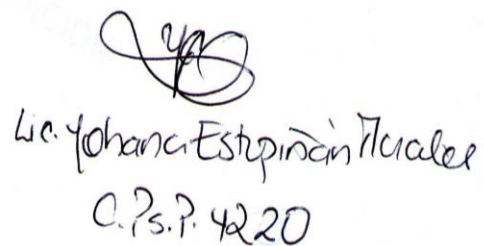 Lic. Yohana Estupiñán Macalee
C.Ps.P. 4220